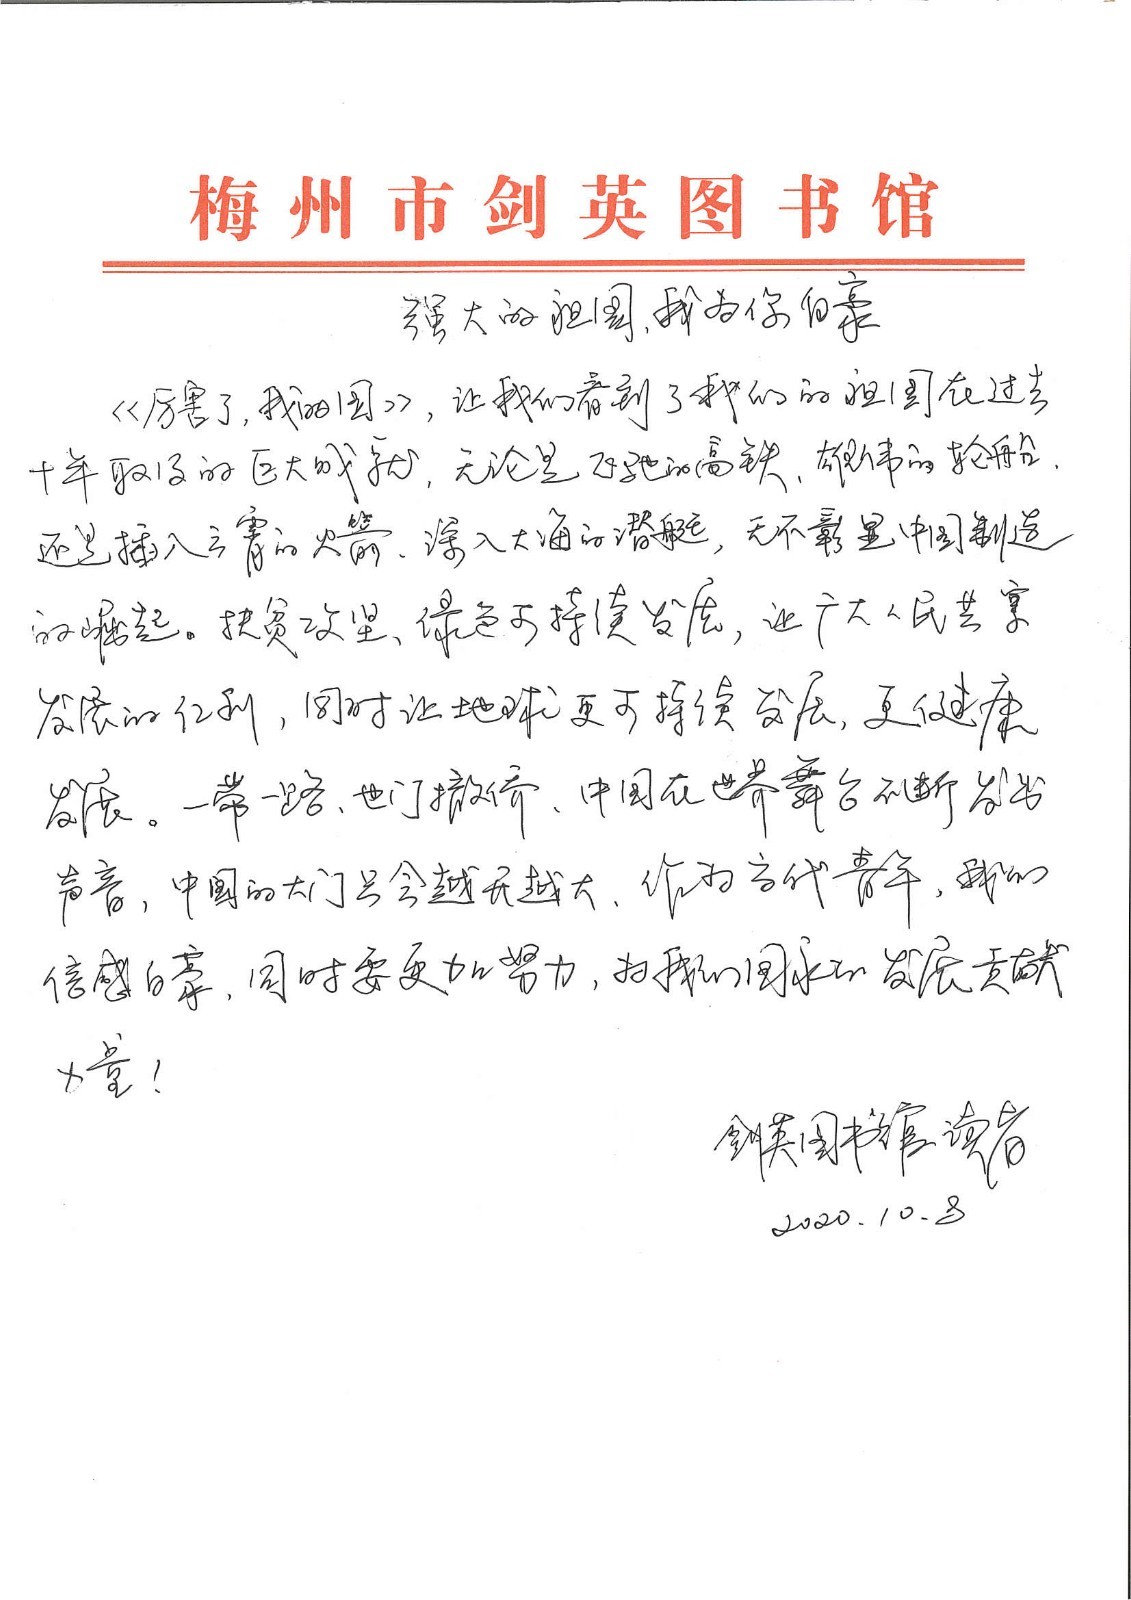 梅州市剑英图书馆
强大的祖国,我为你自豪
《厉害了,我的国》,让我们看到了我们的祖国在过去
十年取得的巨大成就,无论是飞驰的高铁、雄伟的轮船、
还是插入云霄的火箭、深入大海的潜艇,无不彰显中国制造
的崛起。扶贫攻坚、绿色可持续发展,让广大人民共享
发展的红利,同时让地球更可持续发展,更健康
发展。一带一路、也门撤侨、中国在世界舞台不断发出
声音,中国的大门只会越开越大、作为当代青年,我们
倍感自豪,同时要更加努力,为我们国家的发展贡献
力量!
剑英图书馆读者
2020.10.8